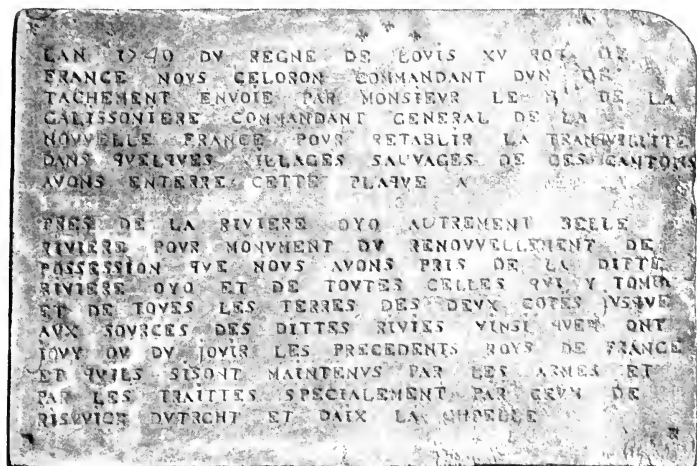 LAN 1749 DV REGNE DE LOVIS XV ROY DE
FRANCE NOVS CELORON COMMANDANT DVN DE
TACHEMENT ENVOIE PAR MONSIEVR LE M DE LA
GALISSONIERE COMMANDANT GENERAL DE LA
NOVVELLE FRANCE POVR RETABLIR LA TRANQVILLITE
DANS QVELQVES VILLAGES SAUVAGES DE CES CANTONS
AVONS ENTERRE CETTE PLAQVE A
PRES DE LA RIVIERE OYO AUTREMENT BELLE
RIVIERE POVR MONVMENT DV RENOVVELLEMENT DE
POSSESSION QVE NOVS AVONS PRIS DE LA DITTE
RIVIERE OYO ET DE TOVTES CELLES QVI Y TOMB
ET DE TOVES LES TERRES DES DEVX COTES JVSQVE
AVX SOVRCES DES DITTES RIVIES VINSI QVEN ONT
JOVY OV DV JOVIR LES PRECEDENTS ROYS DE FRANCE
ET QVILS SISONT MAINTENVS PAR LES ARMES ET
PAR LES TRAITTES SPECIALEMENT PAR CEVX DE
RISWICK DVTRCHT ET DAIX LA CHPELLE